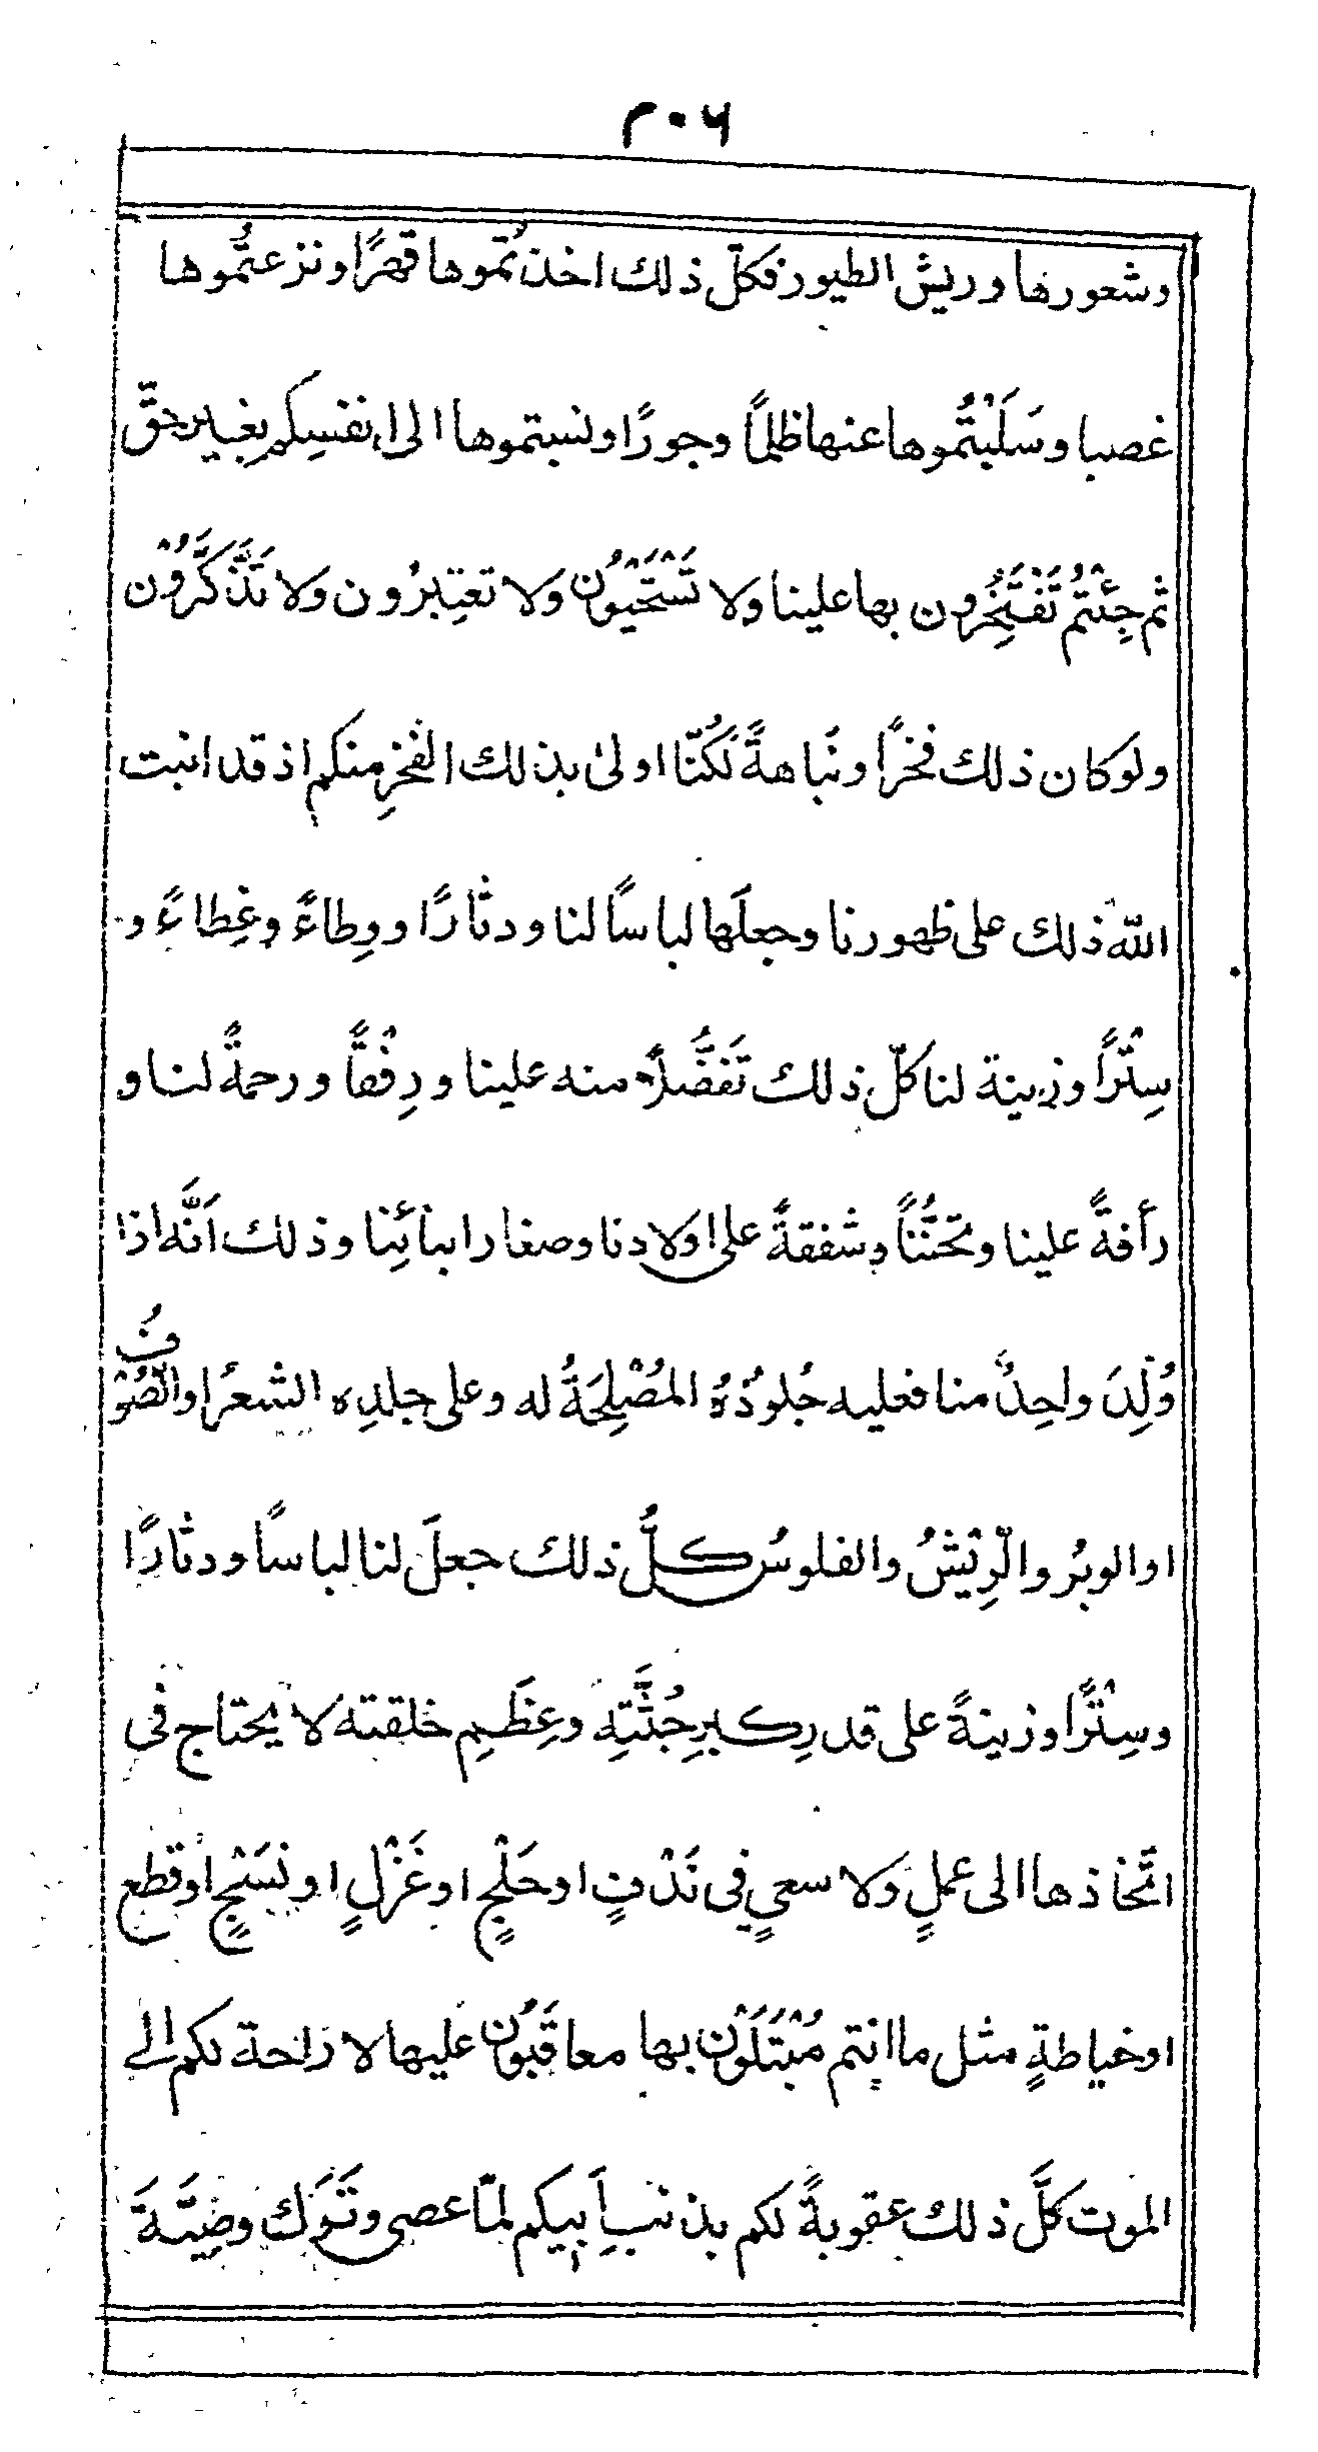 ٢٠٦
وشعورها وريش الطيور فكلّ ذلك اخذتُموها قهرًا ونزعتُّموها
غصبا وسَلَبْتُموها عنها ظلمًا وجورًا ونسبتموها الى انفسِكم بِغيرحقّ
ثم جِئْتُم تَفْتَخِرُون بها علينا ولا تَسْتَحْيُون وَلا تعتِبرُون وَلا تَذَّكَّرُوْن
ولوكان ذلك فخرًا ونَباهةً لَكُنّا اولىٰ بذلك الفخرِ منكم اذ قد انبت
اللّه ذلك على ظهورنا وجعلَها لباسًا لنا ودثارًا ووِطاءً وغِطاءً و
سِتْرًا وزينة لنا كلّ ذلك تَفَضُّلًا منه علينا ورِفْقًا ورحمةً لنا و
رأفةً علينا وتَحَنُّنًا وشفقةً على اولادنا وصغار ابنائِنا وذلك اَنَّه اذا
وُلِدَ واحِدٌ منا فعليه جُلودُهُ المُصْلِحَةُ له وعلى جلدِه الشعرُ اوالصُوْفُ
اوالوبرُ والرِيْشُ والفلوسُ كلُّ ذلك جعلَ لنا لباسًا ودثارًا
وسِتْرًا وزينةً على قدرِ كبرِ جُثَّتِهٖ وعِظَمِ خلقته لا يحتاج فى
اتّخاذها الى عملٍ وَلا سعيٍ فِى نَدْفٍ اوحَلْجٍ اوغَزْلٍ اونَسْجٍ اوقطع
اوخياطةٍ مثل ما انتم مُبْتَلَوْن بها معاقَبُون عليها لا رَاحة لكم الى
الموت كلَّ ذلك عقوبةً لكم بذنب اَبيكم لمّا عصى وتَرَك وصِيَّةَ